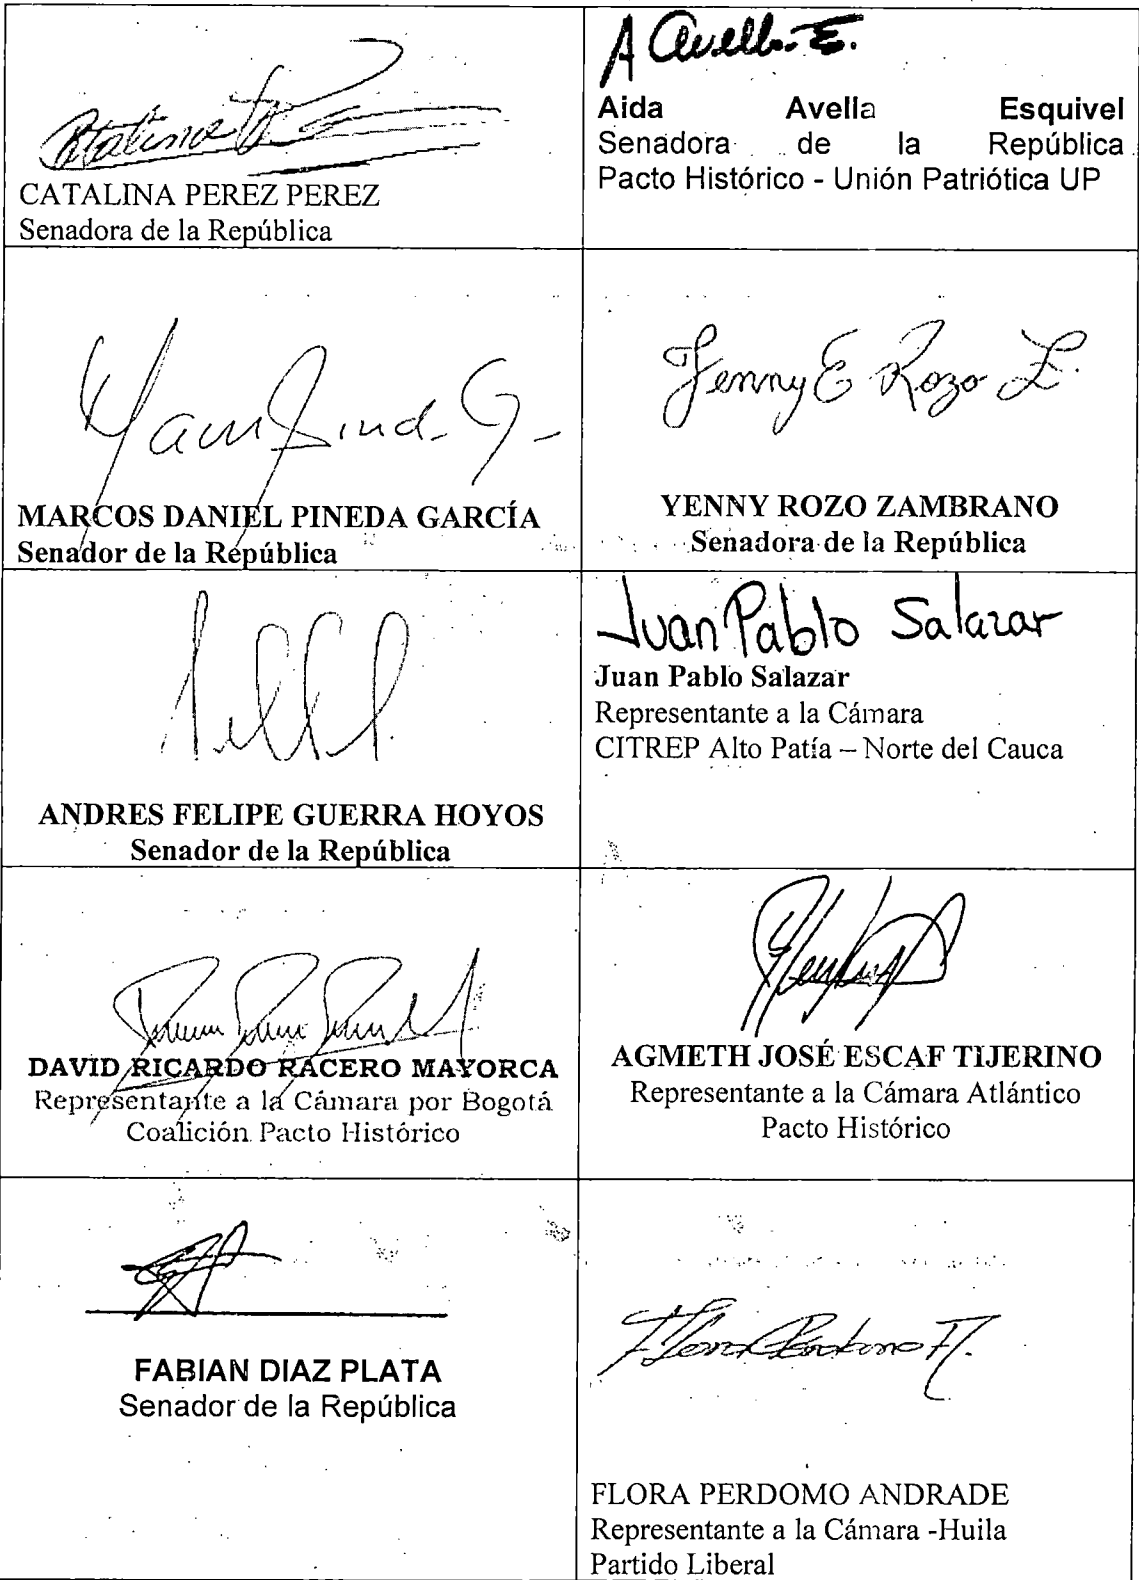 A Avella E.
Aida Avella Esquivel
Senadora de la República
Pacto Histórico - Unión Patriótica UP
CATALINA PEREZ PEREZ
Senadora de la República
MARCOS DANIEL PINEDA GARCÍA
Senador de la República
Yenny E Rozo Z.
YENNY ROZO ZAMBRANO
Senadora de la República
ANDRES FELIPE GUERRA HOYOS
Senador de la República
Juan Pablo Salazar
Juan Pablo Salazar
Representante a la Cámara
CITREP Alto Patía – Norte del Cauca
DAVID RICARDO RACERO MAYORCA
Representante a la Cámara por Bogotá
Coalición Pacto Histórico
AGMETH JOSÉ ESCAF TIJERINO
Representante a la Cámara Atlántico
Pacto Histórico
FABIAN DIAZ PLATA
Senador de la República
FLORA PERDOMO ANDRADE
Representante a la Cámara -Huila
Partido Liberal